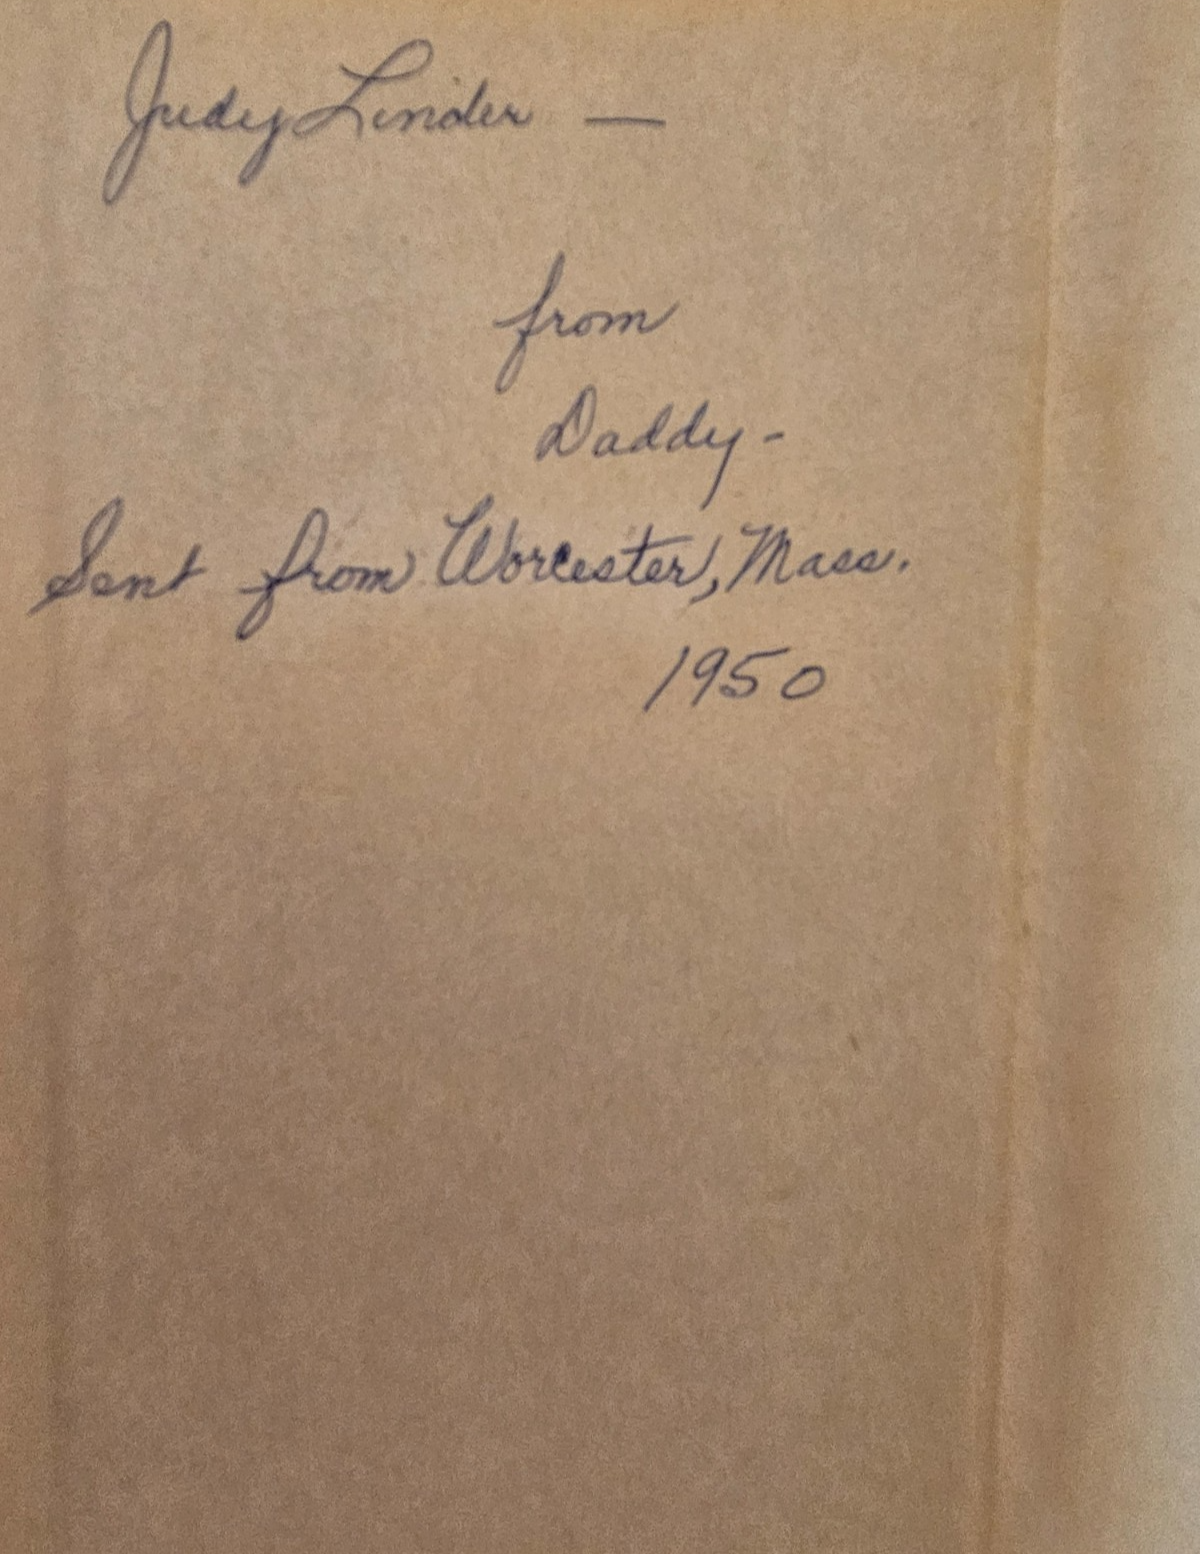 Judy Linder —
from
Daddy -
Sent from Worcester, Mass.
1950